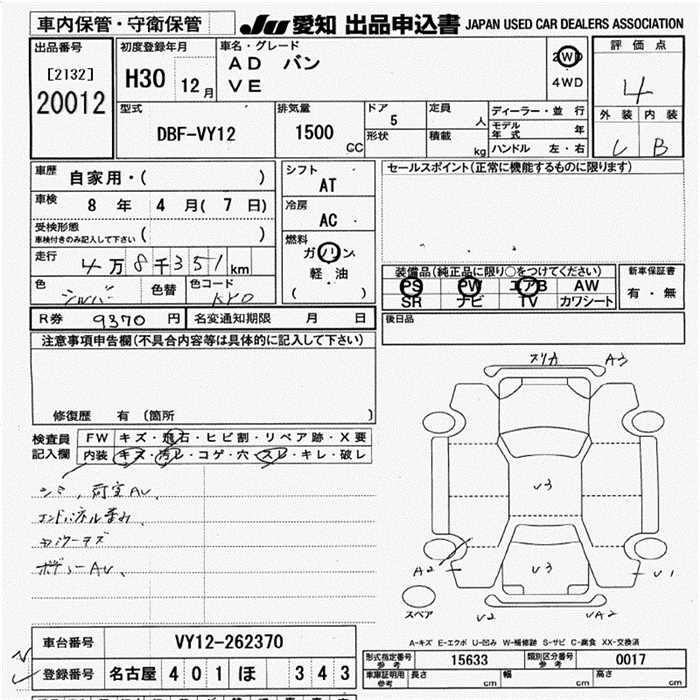 車内保管・守衛保管
JU 愛知 出品申込書 JAPAN USED CAR DEALERS ASSOCIATION
出品番号
[2132]
20012
初度登録年月
H30 12月
車名・グレード
AD バン
VE
2WD
4WD
評価点
4
外装 内装
B
型式
DBF-VY12
排気量
1500 CC
ドア 5
形状
定員 人
積載 kg
ディーラー・並行
モデル年式 年
ハンドル 左・右
車歴 自家用・( )
車検 8年 4月( 7日)
受検形態
車検付きのみ記入して下さい ( )
走行 4万8千351km
色 シルバー 色替 色コード KY0
シフト
AT
冷房
AC
燃料
ガソリン
軽油
( )
セールスポイント(正常に機能するものに限ります)
装備品(純正品に限り○をつけてください)
PS PW エアB AW
SR ナビ TV カワシート
新車保証書
有・無
R券 9370円 名変通知期限 月 日
後日品
注意事項申告欄(不具合内容等は具体的に記入して下さい)
修復歴 有 〔箇所 〕
検査員記入欄
FW キズ・飛石・ヒビ割・リペア跡・X要
内装 キズ・汚レ・コゲ・穴・スレ・キレ・破レ
シミ、荷室AU、
エンドパネル歪み、
ボデーAU、
スリカ A3
U3
U3
A2
U1
U2
UA2
スペア
A-キズ E-エクボ U-凹み W-補修跡 S-サビ C-腐食 XX-交換済
車台番号 VY12-262370
登録番号 名古屋 401 ほ 343
型式指定番号 参考 15633 類別区分番号 参考 0017
車庫証明用 参考 長さ cm 幅 cm 高さ cm